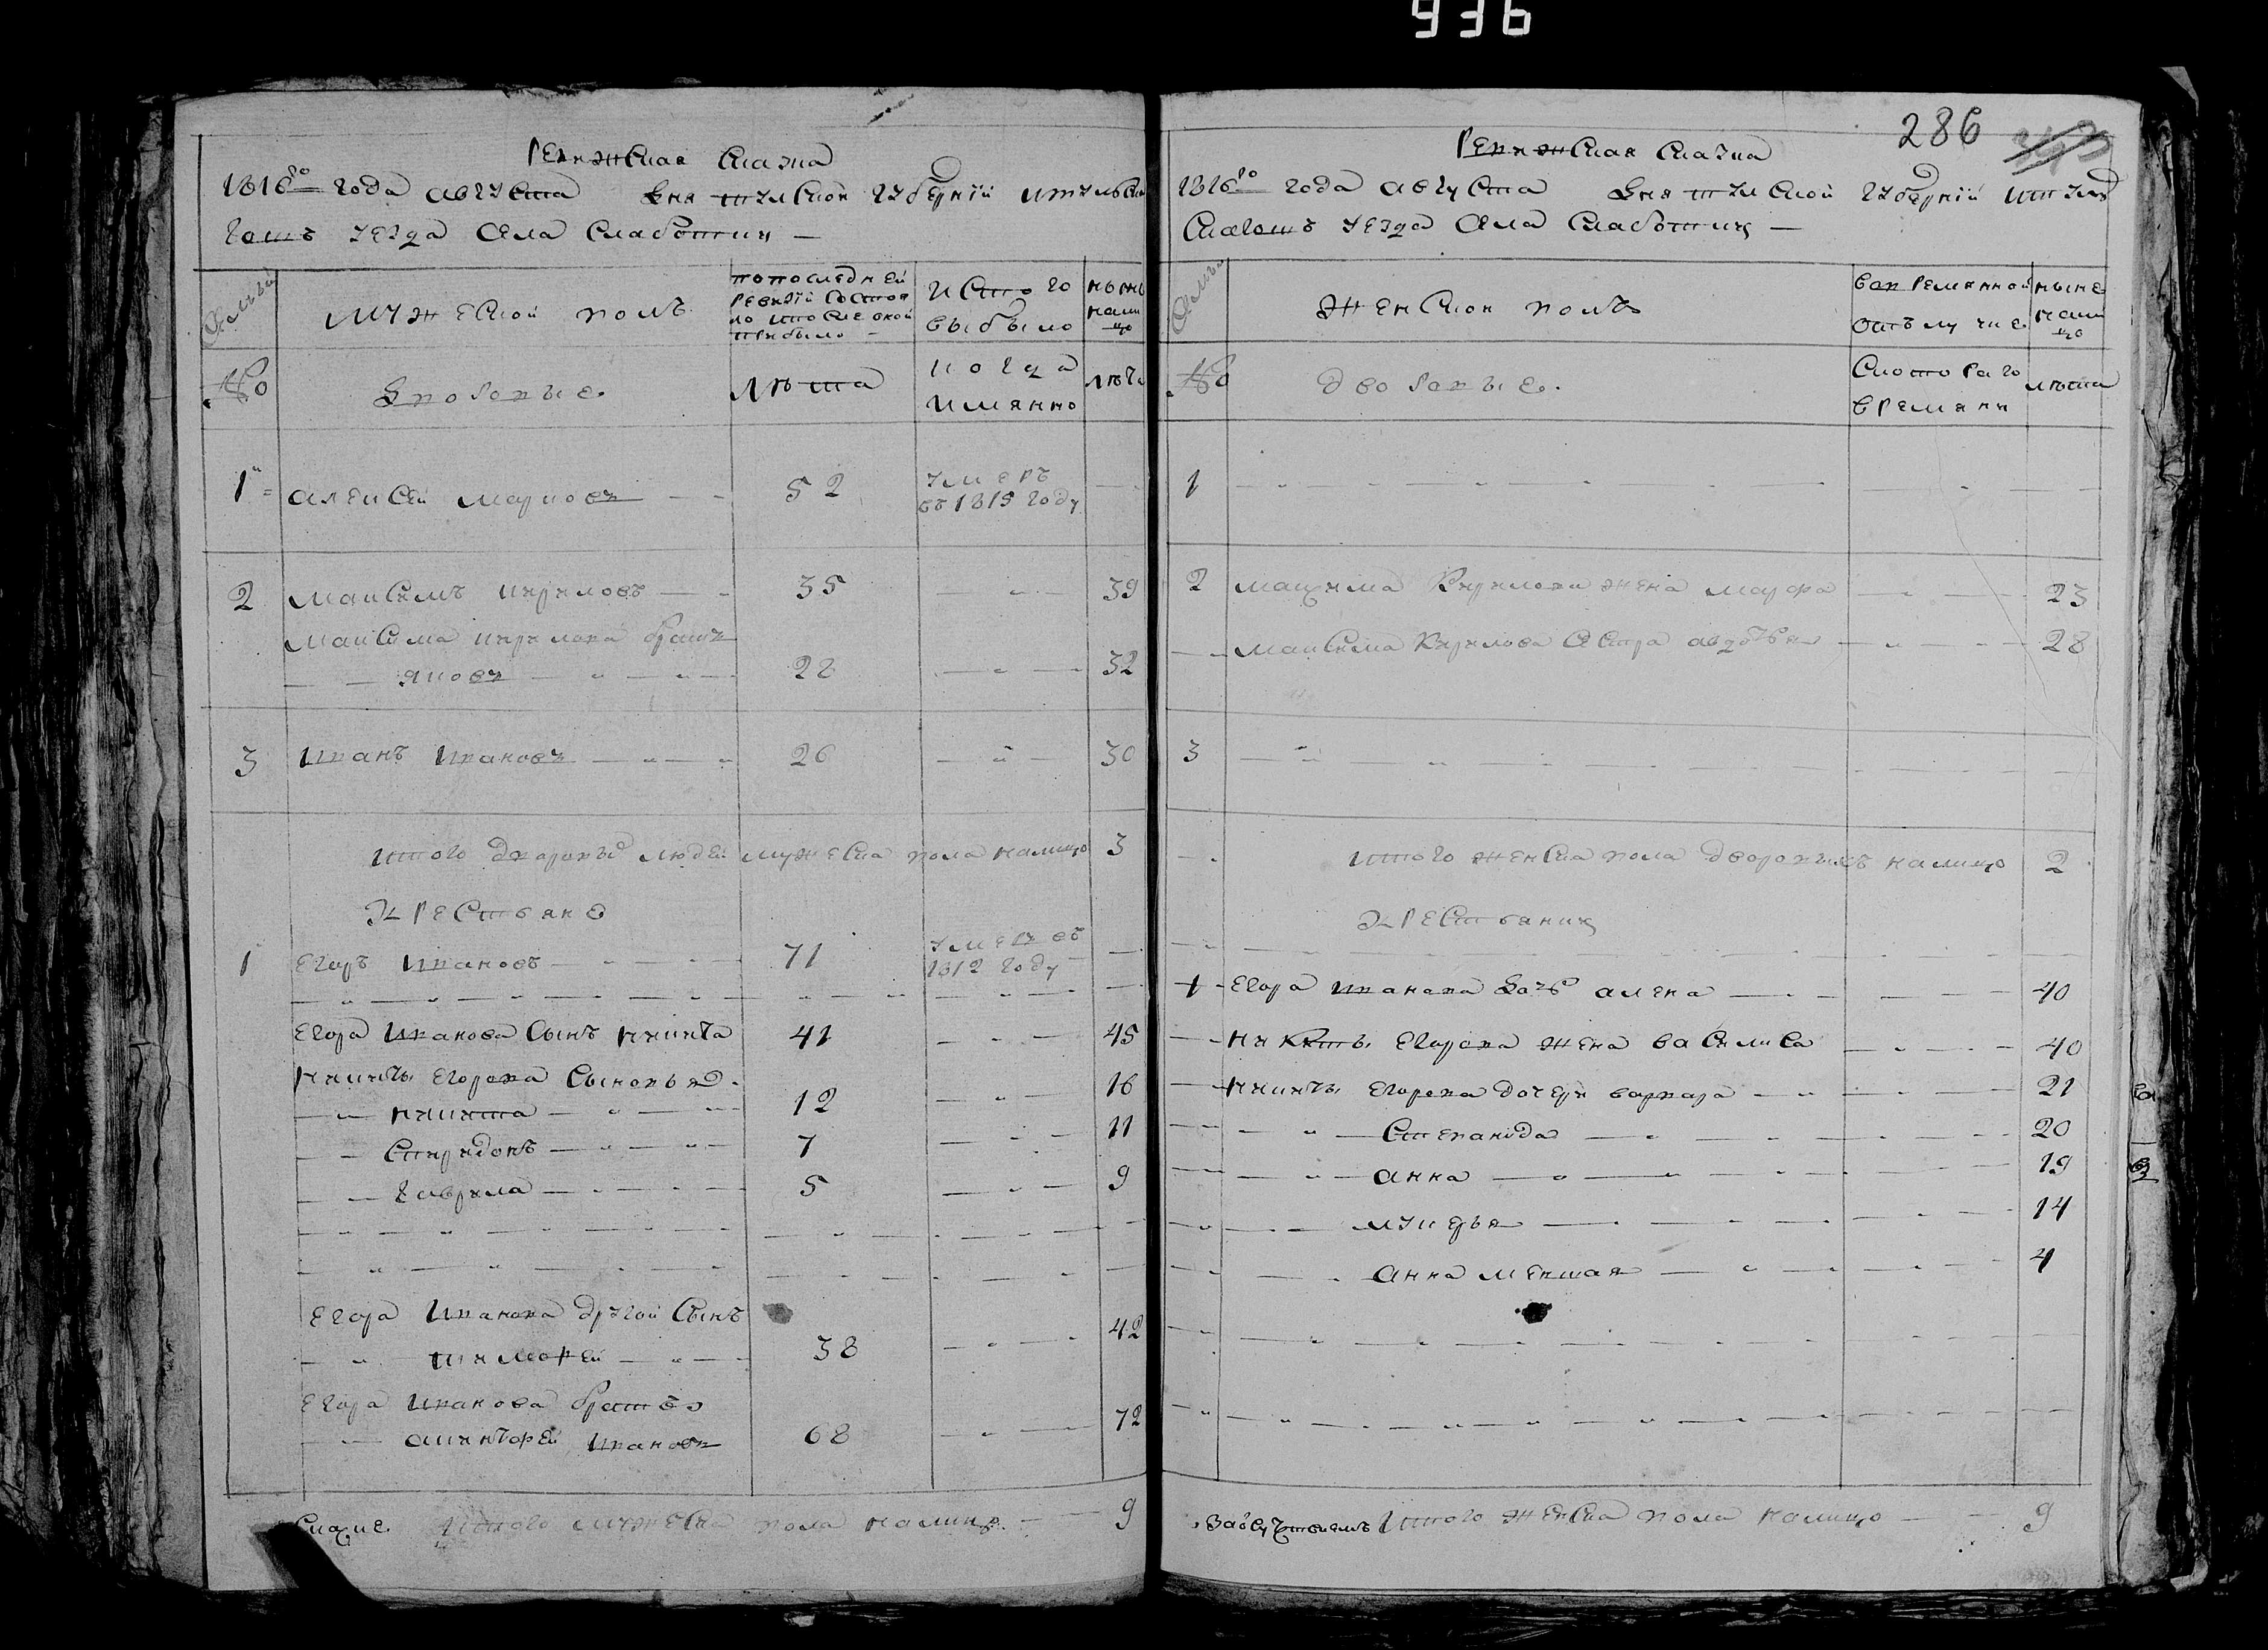 936
Ревижская Сказка
1816го года августа дня тулской губерний
уезда села слаботки
мужеской полъ
по последней ревизии состояло и после оной прибыло
Исто го выбыло
ныне налицо
№
дворовые
лѣта
когда имянно
лѣта
1 алексей марковъ 52 умеръ въ 1815 году
2 максимъ кириловъ 35 39
максима кирилова братъ
яковъ 28 32
3 иванъ ивановъ 26 30
итого дворовыхъ людей мужеска пола налицо 3
крестьяне
1 егоръ ивановъ 71 умеръ въ 1812 году
егора иванова сынъ никита 41 45
никиты егорова сыновья
никита 12 16
спиридонъ 7 11
гаврила 5 9
егора иванова другой сынъ
тимофей 38 42
егора иванова братъ
ивановъ 68 72
итого мужеска пола налицо 9
286
Ревижская Сказка
1816го года августа дня тулской губерний
уезда села слаботки
женской полъ
во временной отълучке
ныне налицо
№
дворовые
с котораго времяни
лѣта
1
2 максима кирилова жена марфа 23
максима кирилова сестра авдотья 28
3
итого женска пола дворовыхъ налицо 2
крестьянки
1 егора иванова дочь алена 40
никиты егорова жена василиса 40
никиты егорова дочери варвара 21
степанида 20
анна 19
лукерья 14
анна меншая 4
итого женска пола налицо 9